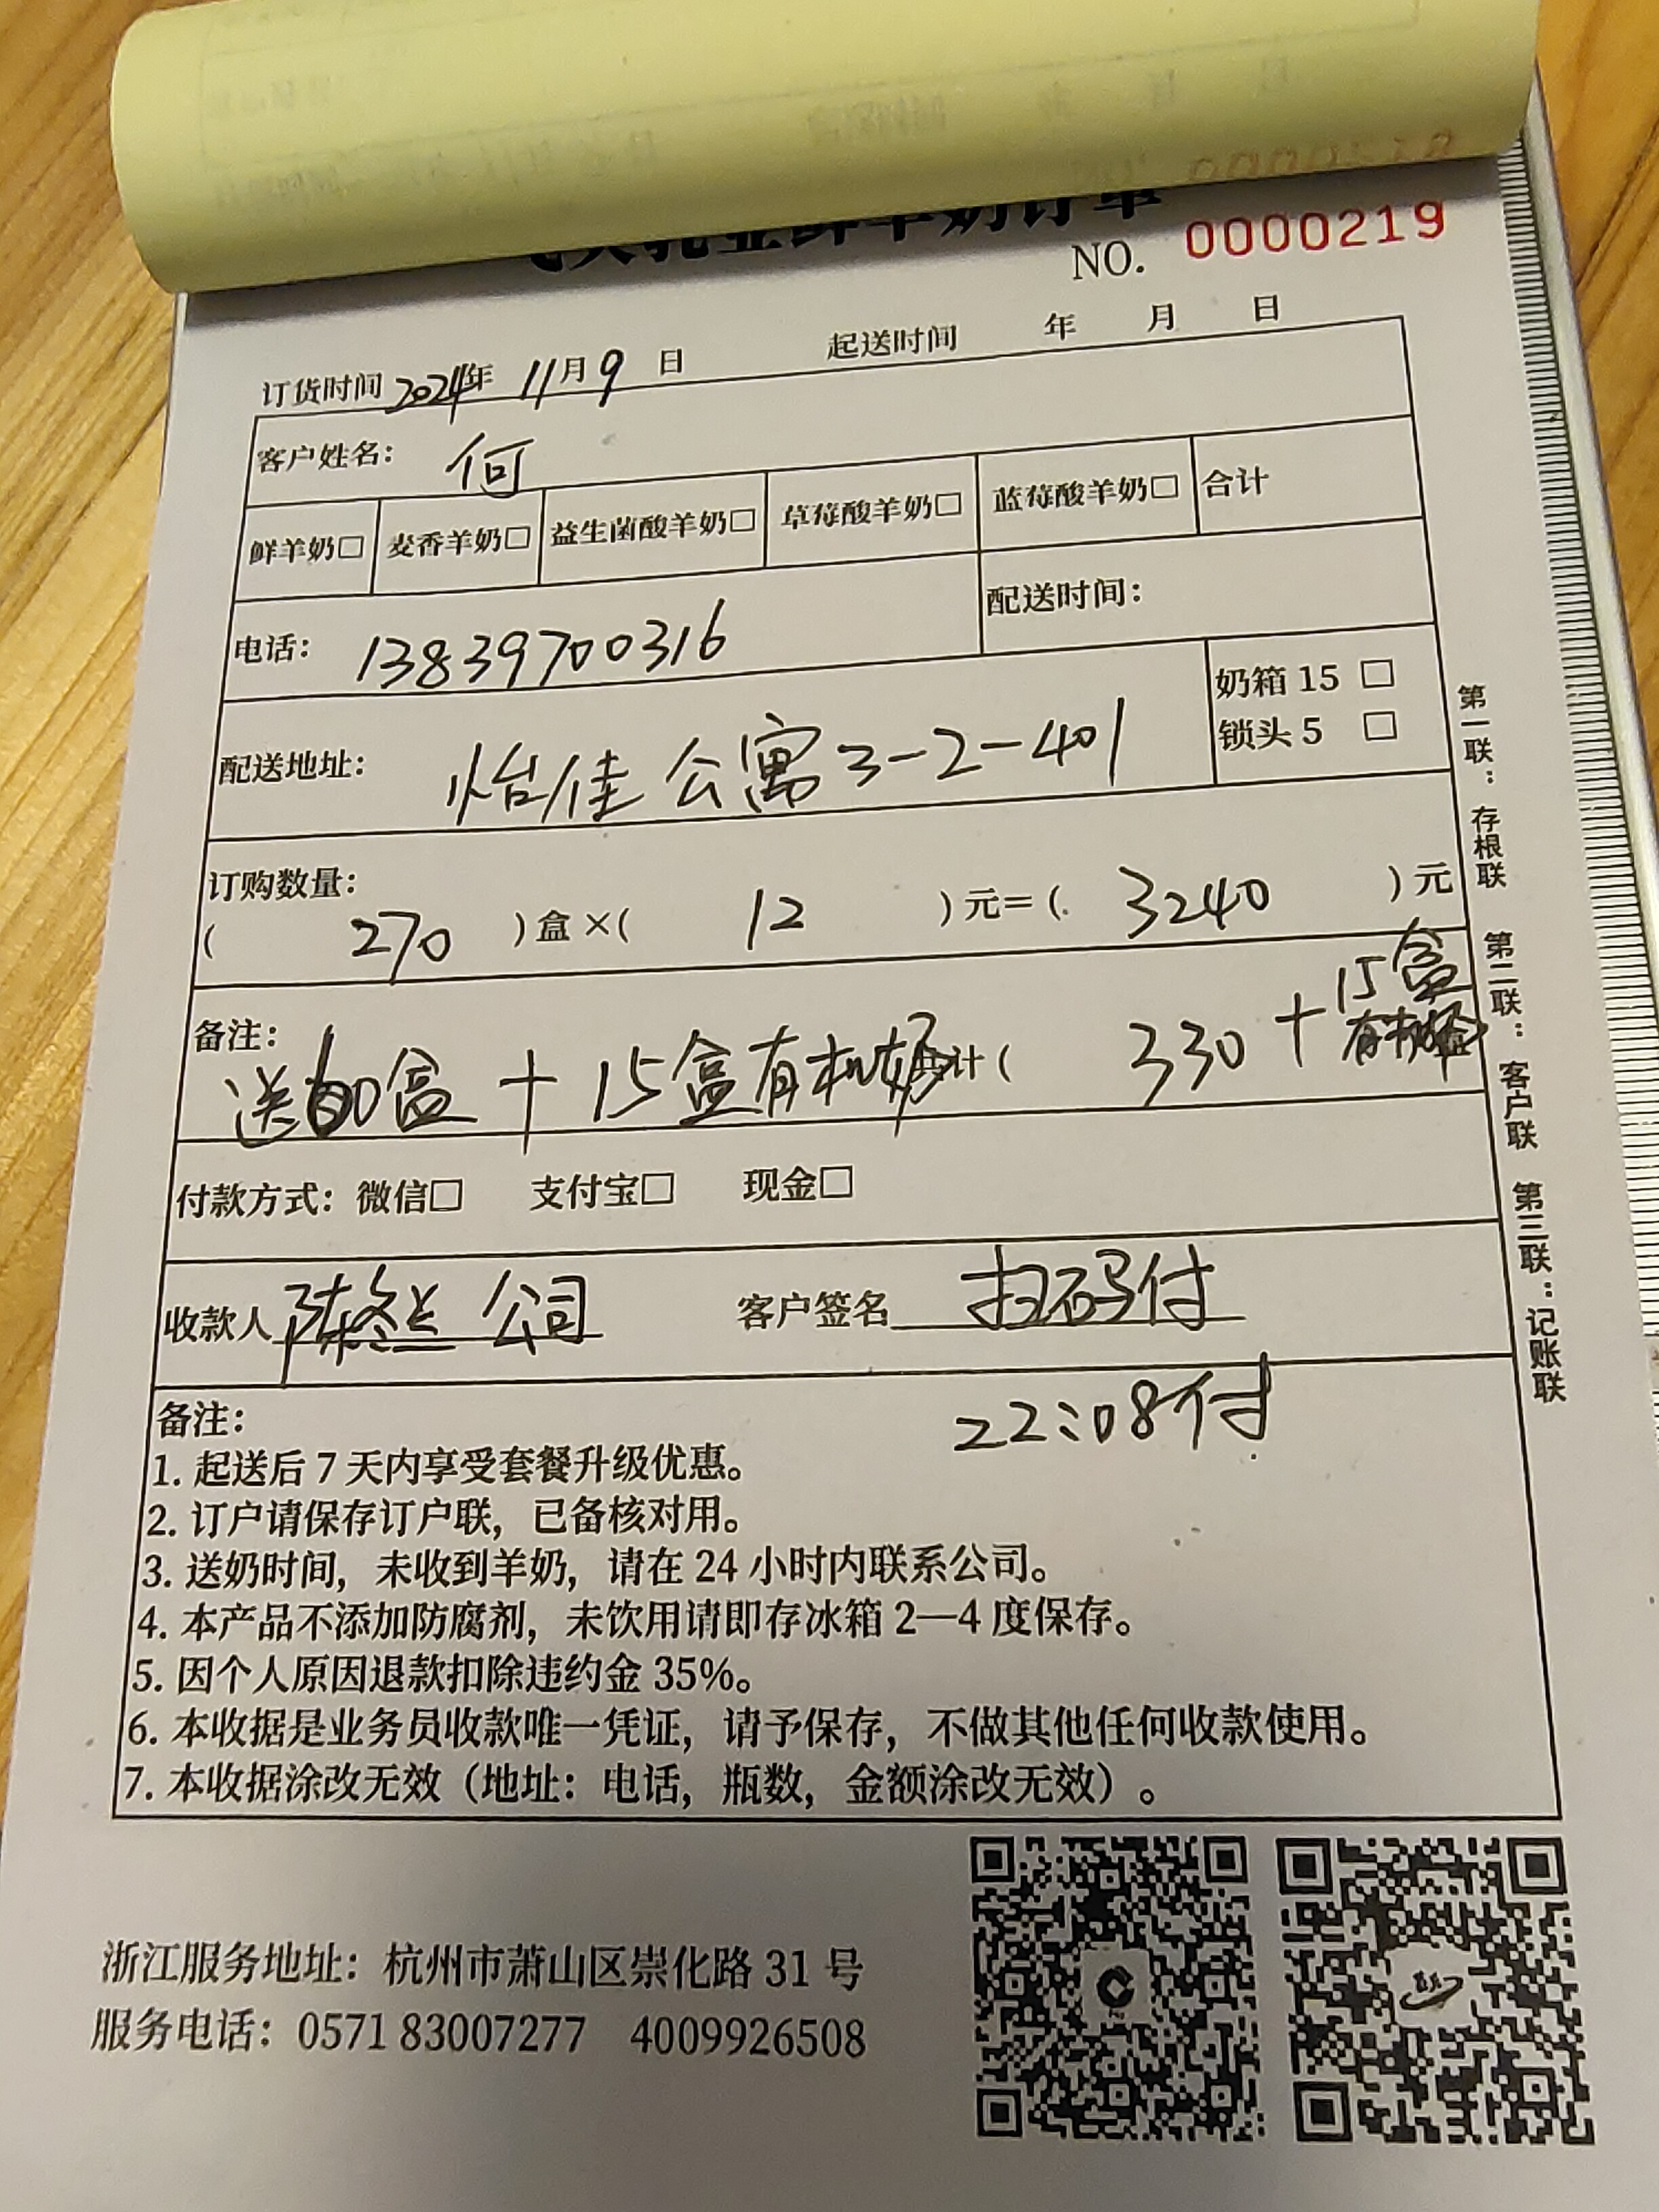 乳业鲜羊奶订单
NO. 0000219
订货时间 2024年 11月 9 日 起送时间 年 月 日
客户姓名： 何
鲜羊奶□ 麦香羊奶□ 益生菌酸羊奶□ 草莓酸羊奶□ 蓝莓酸羊奶□ 合计
电话： 13839700316 配送时间：
配送地址： 怡佳公寓3-2-401
奶箱 15 □
锁头 5 □
订购数量：
( 270 ) 盒 ×( 12 ) 元＝( 3240 ) 元
备注：
送60盒 + 15盒有机奶 共计 ( 330 + 15盒
有机奶
付款方式：微信□ 支付宝□ 现金□
收款人 陈 公司 客户签名 扫码付
22:08付
备注：
1. 起送后 7 天内享受套餐升级优惠。
2. 订户请保存订户联，已备核对用。
3. 送奶时间，未收到羊奶，请在 24 小时内联系公司。
4. 本产品不添加防腐剂，未饮用请即存冰箱 2—4 度保存。
5. 因个人原因退款扣除违约金 35%。
6. 本收据是业务员收款唯一凭证，请予保存，不做其他任何收款使用。
7. 本收据涂改无效（地址：电话，瓶数，金额涂改无效）。
第一联：存根联 第二联：客户联 第三联：记账联
浙江服务地址：杭州市萧山区崇化路 31 号
服务电话：0571 83007277 4009926508